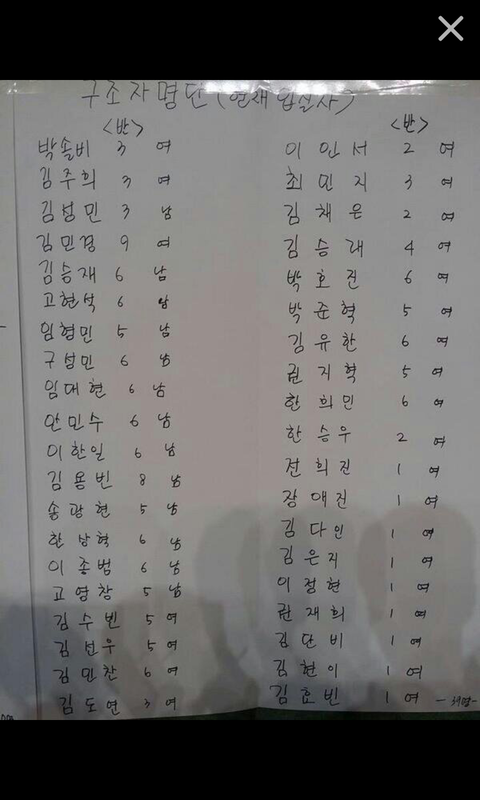 구조자명단 (현재 입실자)
<반>
박솔비 3 여
김주희 3 여
김성민 3 남
김민경 9 여
김승재 6 남
고현석 6 남
임형민 5 남
구성민 6 남
임대현 6 남
안민수 6 남
이한일 6 남
김용빈 8 남
송광현 5 남
한상혁 6 남
이종범 6 남
고영창 5 남
김수빈 5 여
김선우 5 여
김민찬 6 여
김도연 3 여
<반>
이인서 2 여
최민지 3 여
김채은 2 여
김승래 4 여
박호진 6 여
박준혁 5 여
김유한 6 여
권지혁 5 여
한희민 6 여
한승우 2 여
전희진 1 여
장애진 1 여
김다인 1 여
김은지 1 여
이정현 1 여
권재희 1 여
김단비 1 여
김현이 1 여
김효빈 1 여 -39명-